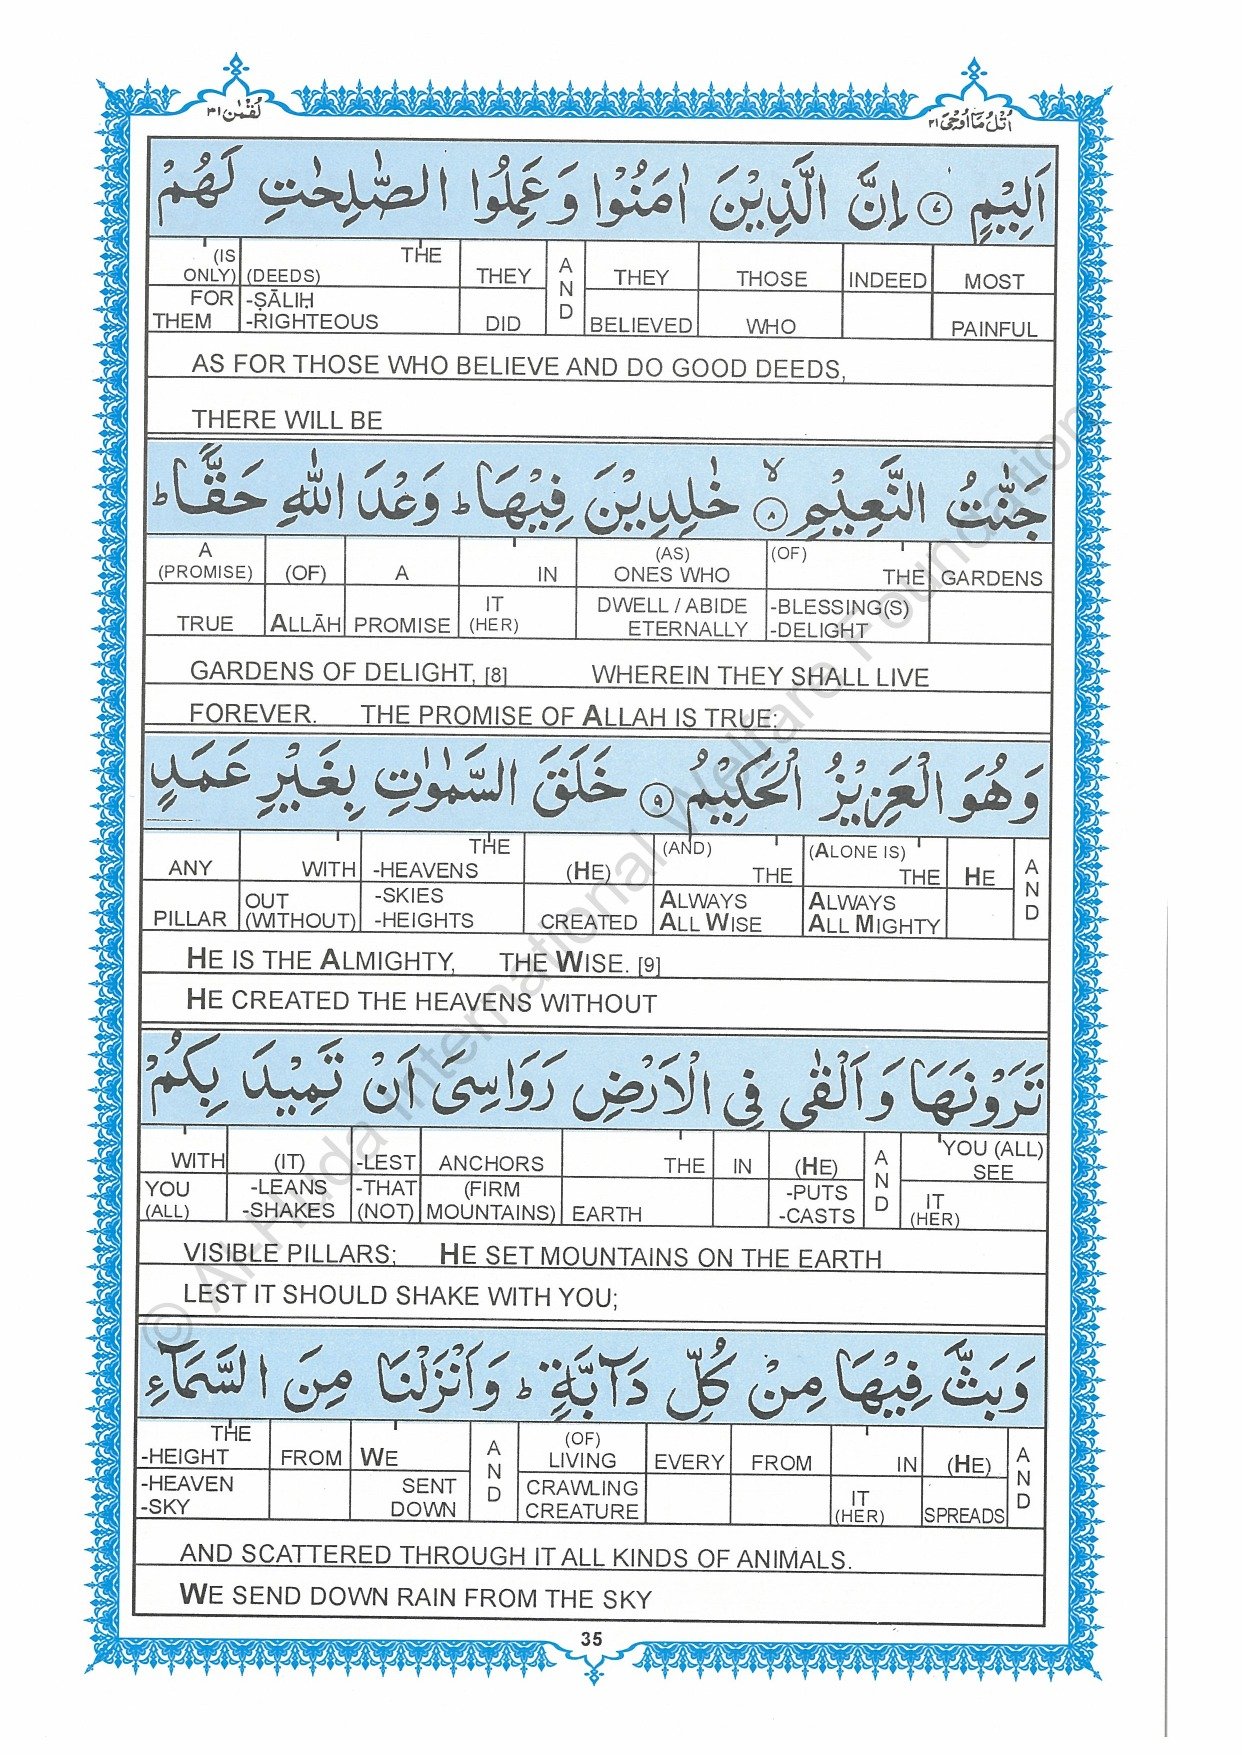 لُقْمٰن ٣١
اُتْلُ مَآ اُوْحِیَ ٢١
اَلِيْمٍ ٧ اِنَّ الَّذِيْنَ اٰمَنُوْا وَ عَمِلُوا الصّٰلِحٰتِ لَهُمْ
(IS ONLY) (DEEDS) THE THEY AND THEY THOSE INDEED MOST
FOR THEM -ṢĀLIḤ -RIGHTEOUS DID BELIEVED WHO PAINFUL
AS FOR THOSE WHO BELIEVE AND DO GOOD DEEDS,
THERE WILL BE
جَنّٰتُ النَّعِيْمِ ٨ لا خٰلِدِيْنَ فِيْهَا ط وَعْدَ اللّٰهِ حَقًّا ط
A (PROMISE) (OF) A IN (AS) ONES WHO (OF) THE GARDENS
TRUE ALLĀH PROMISE IT (HER) DWELL / ABIDE ETERNALLY -BLESSING(S) -DELIGHT
GARDENS OF DELIGHT, [8] WHEREIN THEY SHALL LIVE
FOREVER. THE PROMISE OF ALLAH IS TRUE:
وَ هُوَ الْعَزِيْزُ الْحَكِيْمُ ٩ خَلَقَ السَّمٰوٰتِ بِغَيْرِ عَمَدٍ
ANY WITH THE -HEAVENS (HE) (AND) THE (ALONE IS) THE HE AND
PILLAR OUT (WITHOUT) -SKIES -HEIGHTS CREATED ALWAYS ALL WISE ALWAYS ALL MIGHTY
HE IS THE ALMIGHTY, THE WISE. [9]
HE CREATED THE HEAVENS WITHOUT
تَرَوْنَهَا وَ اَلْقٰى فِي الْاَرْضِ رَوَاسِيَ اَنْ تَمِيْدَ بِكُمْ
WITH (IT) -LEST ANCHORS THE IN (HE) AND YOU (ALL) SEE
YOU (ALL) -LEANS -SHAKES -THAT (NOT) (FIRM MOUNTAINS) EARTH -PUTS -CASTS IT (HER)
VISIBLE PILLARS; HE SET MOUNTAINS ON THE EARTH
LEST IT SHOULD SHAKE WITH YOU;
وَ بَثَّ فِيْهَا مِنْ كُلِّ دَآبَّةٍ ط وَ اَنْزَلْنَا مِنَ السَّمَآءِ
THE -HEIGHT FROM WE AND (OF) LIVING EVERY FROM IN (HE) AND
-HEAVEN -SKY SENT DOWN CRAWLING CREATURE IT (HER) SPREADS
AND SCATTERED THROUGH IT ALL KINDS OF ANIMALS.
WE SEND DOWN RAIN FROM THE SKY
35
© Al-Huda International Welfare Foundation